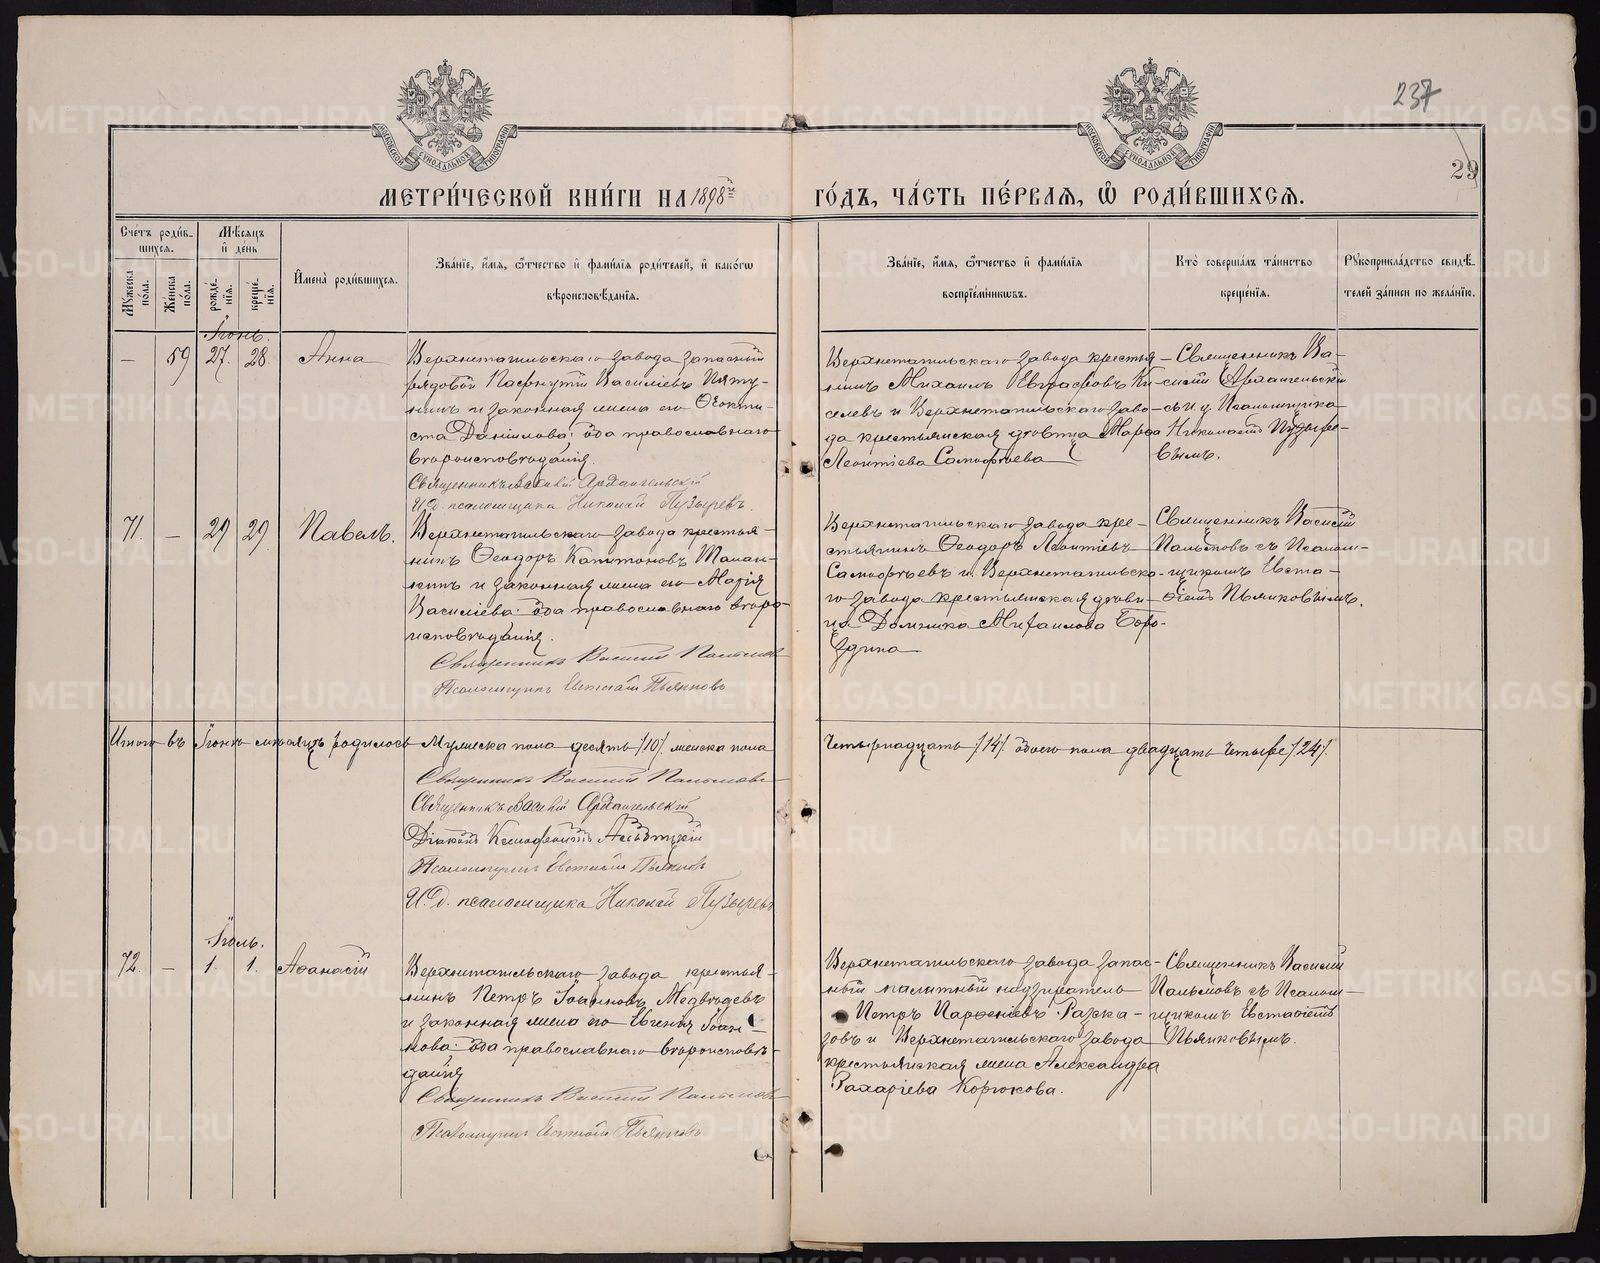 237
29
МОСКОВСКОЙ СѴНОДАЛЬНОЙ ТИПОГРАФІИ
МОСКОВСКОЙ СѴНОДАЛЬНОЙ ТИПОГРАФІИ
МЕТРИ́ЧЕСКОЙ КНИ́ГИ НА 1898й
ГО́ДЪ, ЧА́СТЬ ПЕ́РВАЯ, Ѿ РОДИ́ВШИХСЯ.
Сче́тъ роди́в-
шихся.
Мѣ́сяцъ
и҆ де́нь
Мꙋжеска по́ла.
Же́нска по́ла.
рожде́-
нїя.
креще́-
нїя.
И҆мена̀ роди́вшихся.
Зва́нїе, и҆́мя, ѻ҆́тчество и҆ фами́лїя роди́телей, и҆ како́гѡ
вѣроисповѣ́данїя.
Зва́нїе, и҆́мя, ѻ҆́тчество и҆ фами́лїя
воспрїе́мникѡвъ.
Кто̀ соверша́лъ та́инство
креще́нїя.
Рꙋкоприкла́дство свидѣ́-
телей за́писи по жела́нїю.
Іюнь.
— 59 27. 28. Анна
Верхнетагильскаго завода запасный
рядовой Пафнутій Василіевъ Пяту-
нинъ и законная жена его Ѳеокти-
ста Данилова: оба православнаго
вѣроисповѣданія.
Священникъ Василій Архангельскій
И.д. псаломщика Николай Пузыревъ.
Верхнетагильскаго завода крестья-
нинъ Михаилъ Евграфовъ Ки-
селевъ и Верхнетагильскаго заво-
да крестьянская дѣвица Марѳа
Леонтіева Самофѣева
Священникъ Ва-
силій Архангельскій
съ И. д. Псаломщика
Николаемъ Пузыре-
вымъ.
71. — 29 29. Павелъ.
Верхнетагильскаго завода крестья-
нинъ Ѳеодоръ Капитоновъ
и законная жена его Марія
Василіева: оба православнаго вѣро-
исповѣданія.
Священникъ Василій Пальмовъ
Псаломщикъ Евстафій Пьянковъ
Верхнетагильскаго завода кре-
стьянинъ Ѳеодоръ Леонтіевъ
Самофѣевъ и Верхнетагильска-
го завода крестьянская дѣви-
ца Домника Михаилова Боро-
здина
Священникъ Василій
Пальмовъ съ Псалом-
щикомъ Евста-
ѳіемъ Пьянковымъ.
Итого въ Іюнѣ мѣсяцѣ родилось Мужеска пола десять /10/, женска пола
четырнадцать /14/ обоего пола двадцать четыре /24/.
Священникъ Василій Пальмовъ
Священникъ Василій Архангельскій
Діаконъ Ксенофонтъ
Псаломщикъ Евстафій Пьянковъ
И.д. псаломщика Николай Пузыревъ
Іюль.
72. — 1. 1. Аѳанасій
Верхнетагильскаго завода крестья-
нинъ Петръ Іоанновъ Медвѣдевъ
и законная жена его Евгенія Іоан-
нова: оба православнаго вѣроисповѣ-
данія
Священникъ Василій Пальмовъ
Псаломщикъ Евстафій Пьянковъ
Верхнетагильскаго завода запас-
ный палатный надзиратель
Петръ Парѳеніевъ Разка-
зовъ и Верхнетагильскаго завода
крестьянская жена Александра
Захаріева Корюкова.
Священникъ Василій
Пальмовъ съ Псалом-
щикомъ Евстаѳіемъ
Пьянковымъ.
METRIKI.GASO-URAL.RU